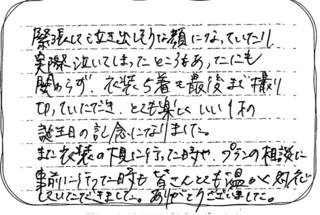 緊張して泣き出しそうな顔になっていたり
実際泣いてしまったところもあったにも
関わらず、衣装5着を最後まで撮り
切っていただき、とても楽しくいい1才の
誕生日の記念になりました。
また衣装の下見に行った時や、プランの相談に
事前に行った時も皆さんとても温かく対応
していただきました。ありがとうございました。